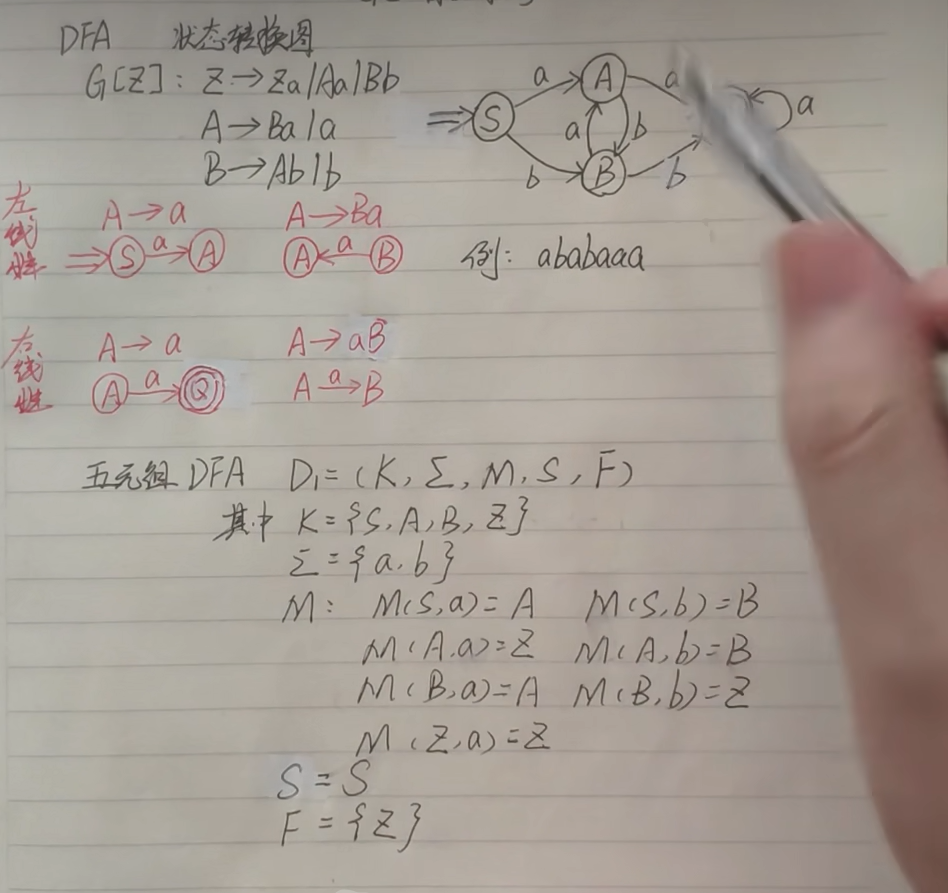 DFA 状态转换图
G[Z]: Z→Za|Aa|Bb
A→Ba|a
B→Ab|b
⇒ S a A a a
a b
b B b
左线性
A→a A→Ba
⇒ S a→ A A ←a B
例: ababaaa
右线性
A→a A→aB
A a→ Q A a→ B
五元组 DFA D₁=(K, Σ, M, S, F)
其中 K={S, A, B, Z}
Σ={a.b}
M: M(S,a)=A M(S,b)=B
M(A.a)=Z M(A,b)=B
M(B,a)=A M(B,b)=Z
M(Z,a)=Z
S=S
F={Z}